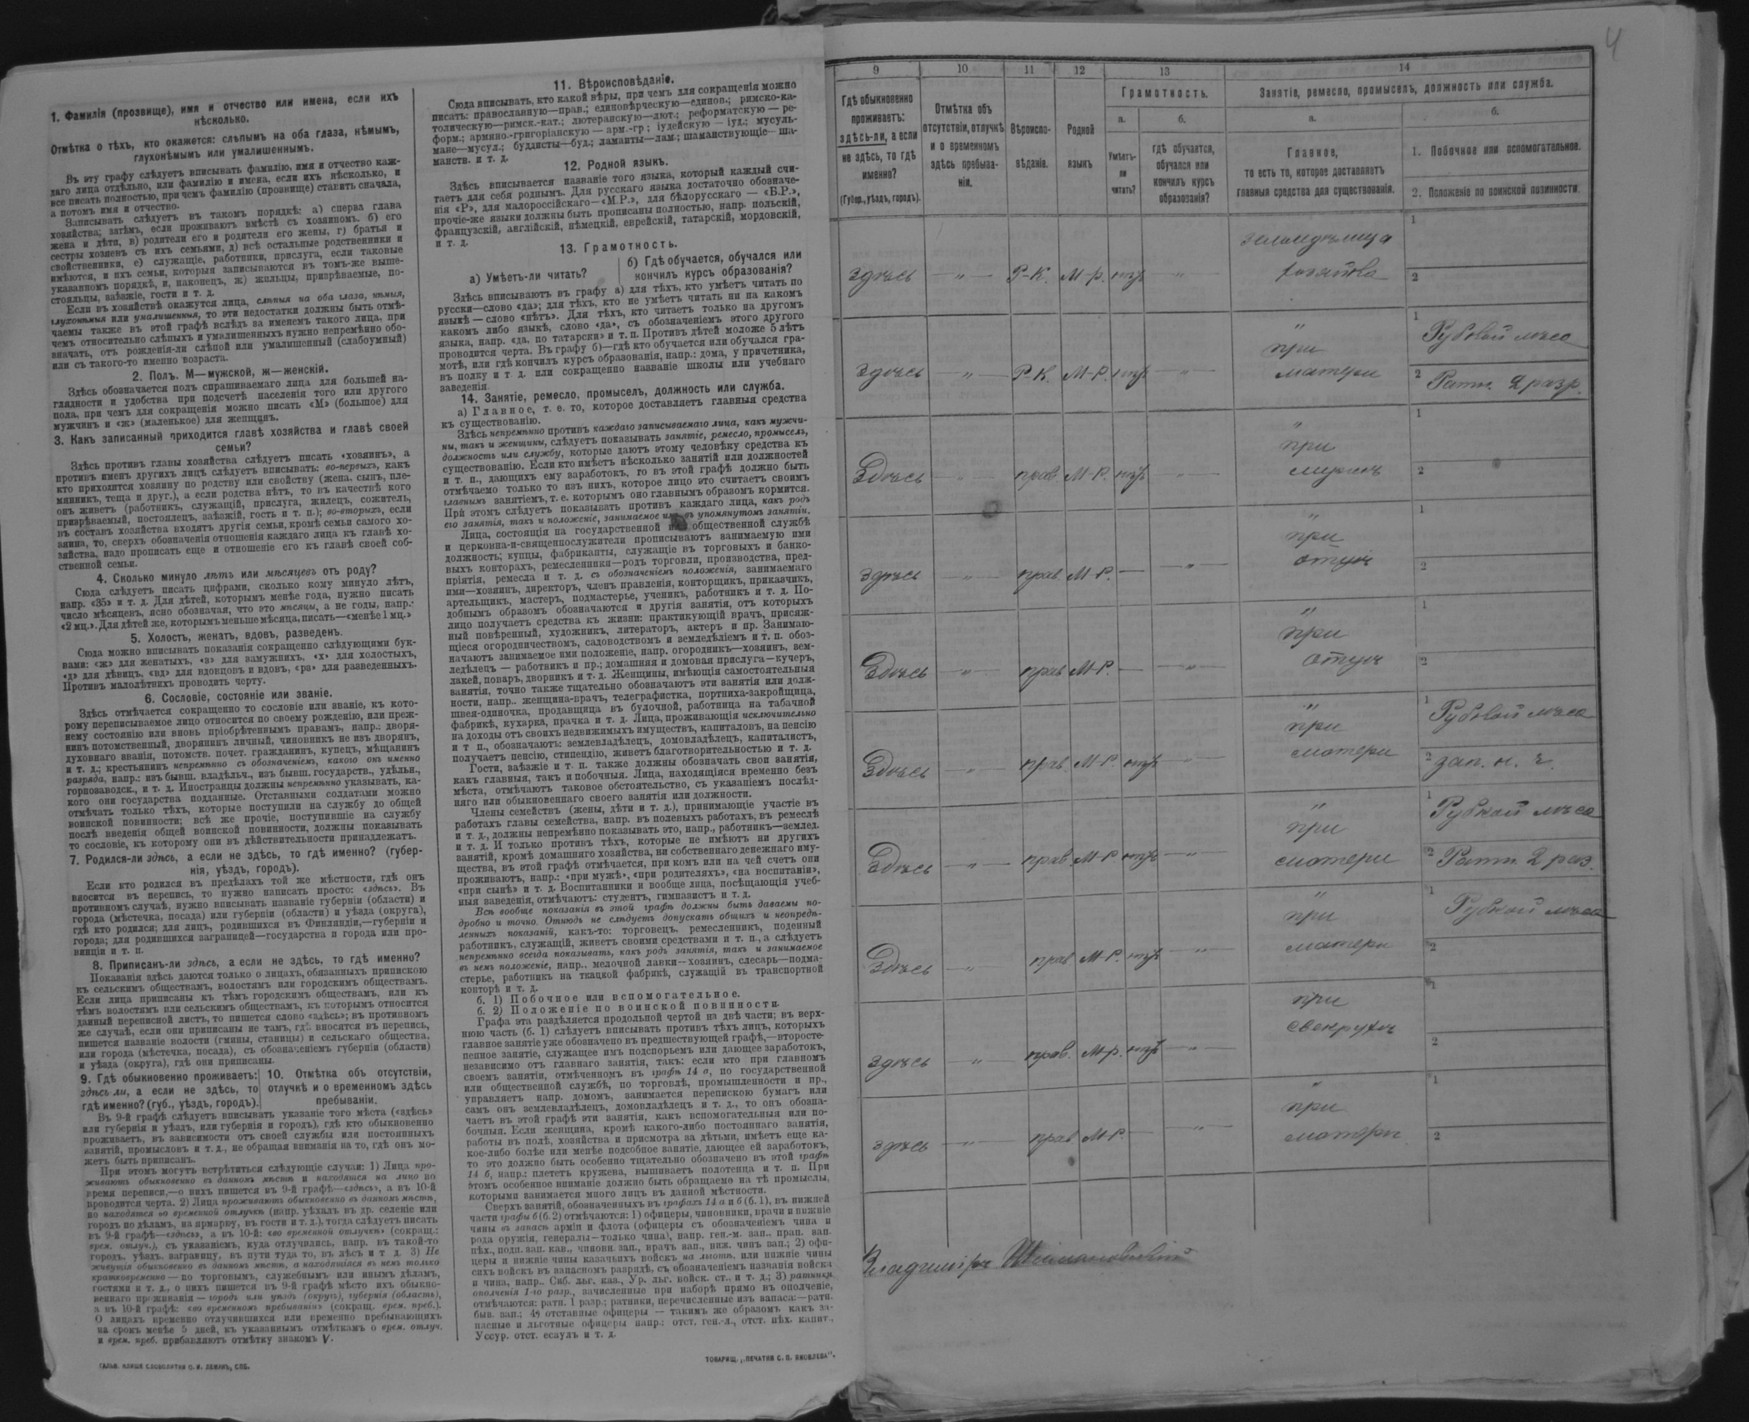 1. Фамилія (прозвище), имя и отчество или имена, если ихъ
нѣсколько.
Отмѣтка о тѣхъ, кто окажется: слѣпымъ на оба глаза, нѣмымъ,
глухонѣмымъ или умалишеннымъ.
Въ эту графу слѣдуетъ вписывать фамилію, имя и отчество каж-
даго лица отдѣльно, или фамилію и имена, если ихъ нѣсколько, и
все писать полностью, при чемъ фамилію (прозвище) ставить сначала,
а потомъ имя и отчество.
Записывать слѣдуетъ въ такомъ порядкѣ: а) сперва глава
хозяйства; затѣмъ, если проживаютъ вмѣстѣ съ хозяиномъ. б) его
жена и дѣти, в) родители его и родители его жены, г) братья и
сестры хозяевъ съ ихъ семьями, д) всѣ остальные родственники и
свойственники, е) служащіе, работники, прислуга, если таковые
имѣются, и ихъ семьи, которыя записываются въ томъ-же выше-
указанномъ порядкѣ, и, наконецъ, ж) жильцы, призрѣваемые, по-
стояльцы, заѣзжіе, гости и т. д.
Если въ хозяйствѣ окажутся лица, слѣпыя на оба глаза, нѣмыя,
глухонѣмыя или умалишенныя, то эти недостатки должны быть отмѣ-
чаемы также въ этой графѣ вслѣдъ за именемъ такого лица, при
чемъ относительно слѣпыхъ и умалишенныхъ нужно непремѣнно обо-
значать, отъ рожденія-ли слѣпой или умалишенный (слабоумный)
или съ такого-то именно возраста.
2. Полъ. М—мужской, ж—женскій.
Здѣсь обозначается полъ спрашиваемаго лица для большей на-
глядности и удобства при подсчетѣ населенія того или другого
пола, при чемъ для сокращенія можно писать «М» (большое) для
мужчинъ и «ж» (маленькое) для женщинъ.
3. Какъ записанный приходится главѣ хозяйства и главѣ своей
семьи?
Здѣсь противъ главы хозяйства слѣдуетъ писать «хозяинъ», а
противъ именъ другихъ лицъ слѣдуетъ вписывать: во-первыхъ, какъ
кто приходится хозяину по родству или свойству (жена, сынъ, пле-
мянникъ, теща и друг.), а если родства нѣтъ, то въ качествѣ кого
онъ живетъ (работникъ, служащій, прислуга, жилецъ, сожитель,
призрѣваемый, постоялецъ, заѣзжій, гость и т. п.); во-вторыхъ, если
въ составъ хозяйства входятъ другія семьи, кромѣ семьи самого хо-
зяина, то, сверхъ обозначенія отношенія каждаго лица къ главѣ хо-
зяйства, надо прописать еще и отношеніе его къ главѣ своей соб-
ственной семьи.
4. Сколько минуло лѣтъ или мѣсяцевъ отъ роду?
Сюда слѣдуетъ писать цифрами, сколько кому минуло лѣтъ,
напр. «35» и т. д. Для дѣтей, которымъ менѣе года, нужно писать
число мѣсяцевъ, ясно обозначая, что это мѣсяцы, а не годы, напр.:
«2 мц.». Для дѣтей же, которымъ меньше мѣсяца, писать—«менѣе 1 мц.»
5. Холостъ, женатъ, вдовъ, разведенъ.
Сюда можно вписывать показанія сокращенно слѣдующими бук-
вами: «ж» для женатыхъ, «з» для замужнихъ, «х» для холостыхъ,
«д» для дѣвицъ, «вд» для вдовцовъ и вдовъ, «рз» для разведенныхъ.
Противъ малолѣтнихъ проводить черту.
6. Сословіе, состояніе или званіе.
Здѣсь отмѣчается сокращенно то сословіе или званіе, къ кото-
рому переписываемое лицо относится по своему рожденію, или преж-
нему состоянію или вновь пріобрѣтеннымъ правамъ, напр.: дворя-
нинъ потомственный, дворянинъ личный, чиновникъ не изъ дворянъ,
духовнаго званія, потомств. почет. гражданинъ, купецъ, мѣщанинъ
и т. д.; крестьянинъ непремѣнно съ обозначеніемъ, какого онъ именно
разряда, напр.: изъ бывш. владѣльч., изъ бывш. государств., удѣльн.,
горнозаводск., и т. д. Иностранцы должны непремѣнно указывать, ка-
кого они государства подданные. Отставными солдатами можно
отмѣчать только тѣхъ, которые поступили на службу до общей
воинской повинности; всѣ же прочіе, поступившіе на службу
послѣ введенія общей воинской повинности, должны показывать
то сословіе, къ которому они въ дѣйствительности принадлежатъ.
7. Родился-ли здѣсь, а если не здѣсь, то гдѣ именно? (губер-
нія, уѣздъ, городъ).
Если кто родился въ предѣлахъ той же мѣстности, гдѣ онъ
вносится въ перепись, то нужно написать просто: «здѣсь». Въ
противномъ случаѣ, нужно вписывать названіе губерніи (области) и
города (мѣстечка, посада) или губерніи (области) и уѣзда (округа),
гдѣ кто родился; для лицъ, родившихся въ Финляндіи,—губерніи и
города; для родившихся заграницей—государства и города или про-
винціи и т. п.
8. Приписанъ-ли здѣсь, а если не здѣсь, то гдѣ именно?
Показанія здѣсь даются только о лицахъ, обязанныхъ припискою
къ сельскимъ обществамъ, волостямъ или городскимъ обществамъ.
Если лица приписаны къ тѣмъ городскимъ обществамъ, или къ
тѣмъ волостямъ или сельскимъ обществамъ, къ которымъ относится
данный переписной листъ, то пишется слово «здѣсь»; въ противномъ
же случаѣ, если они приписаны не тамъ, гдѣ вносятся въ перепись,
пишется названіе волости (гмины, станицы) и сельскаго общества,
или города (мѣстечка, посада), съ обозначеніемъ губерніи (области)
и уѣзда (округа), гдѣ они приписаны.
9. Гдѣ обыкновенно проживаетъ:
здѣсь ли, а если не здѣсь, то
гдѣ именно? (губ., уѣздъ, городъ).
10. Отмѣтка объ отсутствіи,
отлучкѣ и о временномъ здѣсь
пребываніи.
Въ 9-й графѣ слѣдуетъ вписывать указаніе того мѣста («здѣсь»
или губернія и уѣздъ, или губернія и городъ), гдѣ кто обыкновенно
проживаетъ, въ зависимости отъ своей службы или постоянныхъ
занятій, промысловъ и т. д., не обращая вниманія на то, гдѣ онъ мо-
жетъ быть приписанъ.
При этомъ могутъ встрѣтиться слѣдующіе случаи: 1) Лица про-
живаютъ обыкновенно въ данномъ мѣстѣ и находятся на лицо во
время переписи,—о нихъ пишется въ 9-й графѣ—«здѣсь», а въ 10-й
проводится черта. 2) Лица проживаютъ обыкновенно въ данномъ мѣстѣ,
но находятся во временной отлучкѣ (напр. уѣхалъ въ др. селеніе или
городъ по дѣламъ, на ярмарку, въ гости и т. д.), тогда слѣдуетъ писать
въ 9-й графѣ—«здѣсь», а въ 10-й: «во временной отлучкѣ» (сокращ.:
врем. отлуч.), съ указаніемъ, куда отлучились, напр. въ такой-то
городъ, уѣздъ, заграницу, въ пути туда то, въ лѣсъ и т д. 3) Не
живущія обыкновенно въ данномъ мѣстѣ, а находящіяся въ немъ только
кратковременно — по торговымъ, служебнымъ или инымъ дѣламъ,
гостями и т. д., о нихъ пишется въ 9-й графѣ мѣсто ихъ обыкно-
веннаго проживанія — городъ или уѣздъ (округъ), губернія (область),
а въ 10-й графѣ: «во временномъ пребываніи» (сокращ. врем. преб.).
О лицахъ временно отлучившихся или временно пребывающихъ
на срокъ менѣе 5 дней, къ указаннымъ отмѣткамъ о врем. отлуч.
и врем. преб. прибавляютъ отмѣтку знакомъ V.
11. Вѣроисповѣданіе.
Сюда вписывать, кто какой вѣры, при чемъ для сокращенія можно
писать: православную—прав.; единовѣрческую—единов.; римско-ка-
толическую—римск.-кат.; лютеранскую—лют.; реформатскую — ре-
форм.; армяно-григоріанскую — арм.-гр; іудейскую — іуд.; мусуль-
мане—мусул.; буддисты—буд.; ламаиты—лам.; шаманствующіе—ша-
манств. и т. д.
12. Родной языкъ.
Здѣсь вписывается названіе того языка, который каждый счи-
таетъ для себя роднымъ. Для русскаго языка достаточно обозначе-
нія «Р», для малороссійскаго—«М.Р.», для бѣлорусскаго — «Б.Р.»,
прочіе-же языки должны быть прописаны полностью, напр. польскій,
французскій, англійскій, нѣмецкій, еврейскій, татарскій, мордовскій,
и т. д.
13. Грамотность.
а) Умѣетъ-ли читать?
б) Гдѣ обучается, обучался или
кончилъ курсъ образованія?
Здѣсь вписываютъ въ графу а) для тѣхъ, кто умѣетъ читать по
русски—слово «да»; для тѣхъ, кто не умѣетъ читать ни на какомъ
языкѣ — слово «нѣтъ». Для тѣхъ, кто читаетъ только на другомъ
какомъ либо языкѣ, слово «да», съ обозначеніемъ этого другого
языка, напр. «да, по татарски» и т. п. Противъ дѣтей моложе 5 лѣтъ
проводится черта. Въ графу б)—гдѣ кто обучается или обучался гра-
мотѣ, или гдѣ кончилъ курсъ образованія, напр.: дома, у причетника,
въ полку и т. д. или сокращенно названіе школы или учебнаго
заведенія.
14. Занятіе, ремесло, промыселъ, должность или служба.
а) Главное, т. е. то, которое доставляетъ главныя средства
къ существованію.
Здѣсь непремѣнно противъ каждаго записываемаго лица, какъ мужчи-
ны, такъ и женщины, слѣдуетъ показывать занятіе, ремесло, промыселъ,
должность или службу, которые даютъ этому человѣку средства къ
существованію. Если кто имѣетъ нѣсколько занятій или должностей
и т. п., дающихъ ему заработокъ, то въ этой графѣ должно быть
отмѣчаемо только то изъ нихъ, которое лицо это считаетъ своимъ
главнымъ занятіемъ, т. е. которымъ оно главнымъ образомъ кормится.
При этомъ слѣдуетъ показывать противъ каждаго лица, какъ родъ
его занятія, такъ и положеніе, занимаемое имъ въ упомянутомъ занятіи.
Лица, состоящія на государственной общественной службѣ
и церковно-и-священнослужители прописываютъ занимаемую ими
должность; купцы, фабриканты, служащіе въ торговыхъ и банко-
выхъ конторахъ, ремесленники—родъ торговли, производства, пред-
пріятія, ремесла и т. д. съ обозначеніемъ положенія, занимаемаго
ими—хозяинъ, директоръ, членъ правленія, конторщикъ, приказчикъ,
артельщикъ, мастеръ, подмастерье, ученикъ, работникъ и т. д. По-
добнымъ образомъ обозначаются и другія занятія, отъ которыхъ
лицо получаетъ средства къ жизни: практикующій врачъ, присяж-
ный повѣренный, художникъ, литераторъ, актеръ и пр. Занимаю-
щіеся огородничествомъ, садоводствомъ и земледѣліемъ и т. п. обоз-
начаютъ занимаемое ими положеніе, напр. огородникъ—хозяинъ, зем-
ледѣлецъ — работникъ и пр.; домашняя и домовая прислуга—кучеръ,
лакей, поваръ, дворникъ и т. д. Женщины, имѣющія самостоятельныя
занятія, точно также тщательно обозначаютъ эти занятія или долж-
ности, напр.. женщина-врачъ, телеграфистка, портниха-закройщица,
швея-одиночка, продавщица въ булочной, работница на табачной
фабрикѣ, кухарка, прачка и т. д. Лица, проживающія исключительно
на доходы отъ своихъ недвижимыхъ имуществъ, капиталовъ, на пенсію
и т п., обозначаютъ: землевладѣлецъ, домовладѣлецъ, капиталистъ,
получаетъ пенсію, стипендію, живетъ благотворительностью и т. д.
Гости, заѣзжіе и т. п. также должны обозначать свои занятія,
какъ главныя, такъ и побочныя. Лица, находящіяся временно безъ
мѣста, отмѣчаютъ таковое обстоятельство, съ указаніемъ послѣд-
няго или обыкновеннаго своего занятія или должности.
Члены семействъ (жены, дѣти и т. д.), принимающіе участіе въ
работахъ главы семейства, напр. въ полевыхъ работахъ, въ ремеслѣ
и т. д., должны непремѣнно показывать это, напр., работникъ—землед.
и т. д. И только противъ тѣхъ, которые не имѣютъ ни другихъ
занятій, кромѣ домашняго хозяйства, ни собственнаго денежнаго иму-
щества, въ этой графѣ отмѣчается, при комъ или на чей счетъ они
проживаютъ, напр.: «при мужѣ», «при родителяхъ», «на воспитаніи»,
«при сынѣ» и т. д. Воспитанники и вообще лица, посѣщающія учеб-
ныя заведенія, отмѣчаютъ: студентъ, гимназистъ и т. д.
Всѣ вообще показанія въ этой графѣ должны быть даваемы по-
дробно и точно. Отнюдь не слѣдуетъ допускать общихъ и неопредѣ-
ленныхъ показаній, какъ-то: торговецъ. ремесленникъ, поденный
работникъ, служащій, живетъ своими средствами и т. п., а слѣдуетъ
непремѣнно всегда показывать, какъ родъ занятія, такъ и занимаемое
въ немъ положеніе, напр.. мелочной лавки—хозяинъ, слесарь—подма-
стерье, работникъ на ткацкой фабрикѣ, служащій въ транспортной
конторѣ и т. д.
б. 1) Побочное или вспомогательное.
б. 2) Положеніе по воинской повинности.
Графа эта раздѣляется продольной чертой на двѣ части; въ верх-
нюю часть (б. 1) слѣдуетъ вписывать противъ тѣхъ лицъ, которыхъ
главное занятіе уже обозначено въ предшествующей графѣ,—второсте-
пенное занятіе, служащее имъ подспорьемъ или дающее заработокъ,
независимо отъ главнаго занятія, такъ: если кто при главномъ
своемъ занятіи, отмѣченномъ въ графѣ 14 а, по государственной
или общественной службѣ, по торговлѣ, промышленности и пр.,
управляетъ напр. домомъ, занимается перепискою бумагъ или
самъ онъ землевладѣлецъ, домовладѣлецъ и т. д., то онъ обозна-
чаетъ въ этой графѣ эти занятія, какъ вспомогательныя или по-
бочныя. Если женщина, кромѣ какого-либо постояннаго занятія,
работы въ полѣ, хозяйства и присмотра за дѣтьми, имѣетъ еще ка-
кое-либо болѣе или менѣе подсобное занятіе, дающее ей заработокъ,
то это должно быть особенно тщательно обозначено въ этой графѣ
14 б, напр.: плететъ кружева, вышиваетъ полотенца и т. п. При
этомъ особенное вниманіе должно быть обращаемо на тѣ промыслы,
которыми занимается много лицъ въ данной мѣстности.
Сверхъ занятій, обозначенныхъ въ графахъ 14 а и б (б. 1), въ нижней
части графы б (б. 2) отмѣчаются: 1) офицеры, чиновники, врачи и нижніе
чины въ запасѣ арміи и флота (офицеры съ обозначеніемъ чина и
рода оружія, генералы—только чина), напр. ген.-м. зап., прап. зап.
пѣх., подп. зап. кав., чиновн. зап., врачъ зап., ниж. чинъ зап.; 2) офи-
церы и нижніе чины казачьихъ войскъ на льготѣ. или нижніе чины
сихъ войскъ въ запасномъ разрядѣ, съ обозначеніемъ названія войска
и чина, напр.. Сиб. льг. каз., Ур. льг. войск. ст., и т. д.; 3) ратники
ополченія 1-го разр., зачисленные при наборѣ прямо въ ополченіе,
отмѣчаются: ратн. 1 разр.; ратники, перечисленные изъ запаса:—ратн.
быв. зап.; 4) отставные офицеры — такимъ же образомъ какъ за-
пасные и льготные офицеры напр.: отст. ген.-л., отст. пѣх. капит.,
Уссур. отст. есаулъ и т. д.
ТОВАРИЩ. „ПЕЧАТНЯ С. П. ЯКОВЛЕВА“.
4
9 10 11 12 13 14
Гдѣ обыкновенно
проживаетъ:
здѣсь-ли, а если
не здѣсь, то гдѣ
именно?
(Губер., уѣздъ, городъ).
Отмѣтка объ
отсутствіи, отлучкѣ
и о временномъ
здѣсь пребыва-
ніи.
Вѣроиспо-
вѣданіе.
Родной
языкъ
Грамотность.
а.
Умѣетъ-
ли
читать?
б.
гдѣ обучается,
обучался или
кончилъ курсъ
образованія?
Занятіе, ремесло, промыселъ, должность или служба.
а.
Главное,
то есть то, которое доставляетъ
главныя средства для существованія.
б.
1. Побочное или вспомогательное.
2. Положеніе по воинской повинности
здѣсь — „ — Р-К. М-р. нтъ „
хозяйка
1
2
Здѣсь — „ — Р-К. М-Р. нтъ „ —
„ при
матери
1 Рубкой лѣса
2 Ратн. 2 разр.
Здѣсь „ прав. М-Р. нтъ „ —
„ при
мужѣ
1
2
здѣсь „ прав. М-Р. — „ —
„ при
отцѣ
1
2
Здѣсь — „ — прав. М-Р. — „ —
„ при
отцѣ
1
2
Здѣсь — „ — прав. М-Р. нтъ — „ —
„ при
матери
1 Рубкой лѣса
2 зап. н. ч.
Здѣсь — „ — прав. М-Р. нтъ — „ —
„ при
матери
1 Рубкой лѣса
2 Ратн. 2 раз.
Здѣсь „ прав. М-Р. нтъ „ —
„ при
матери
1 Рубкой лѣса
2
здѣсь „ прав. М-р. нтъ — „ —
при
свекрухѣ
1
2
здѣсь — „ — прав. М-Р. — „ —
„ при
матери
1
2
Владиміръ